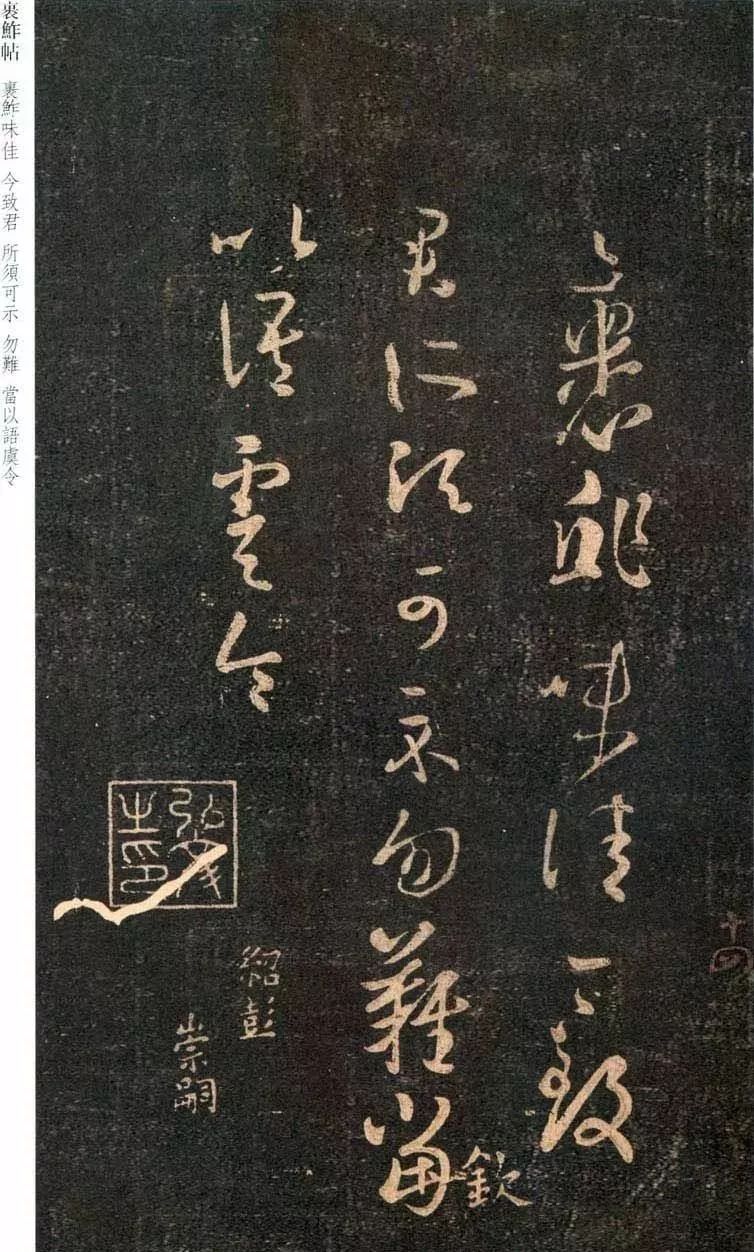 裹鮓帖 裹鮓味佳 今致君 所須可示 勿難 當以語虞令
裹鮓味佳今致
君所須可示勿難當
以語虞令
欽
十四
紹彭
崇嗣